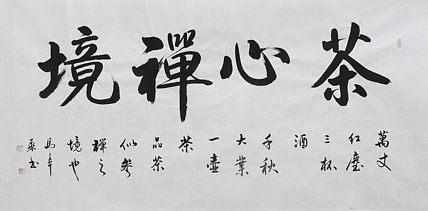 茶心禪境
萬丈
紅塵
三杯
酒
千秋
大業
一壺
茶
品茶
似參
禪之
境也